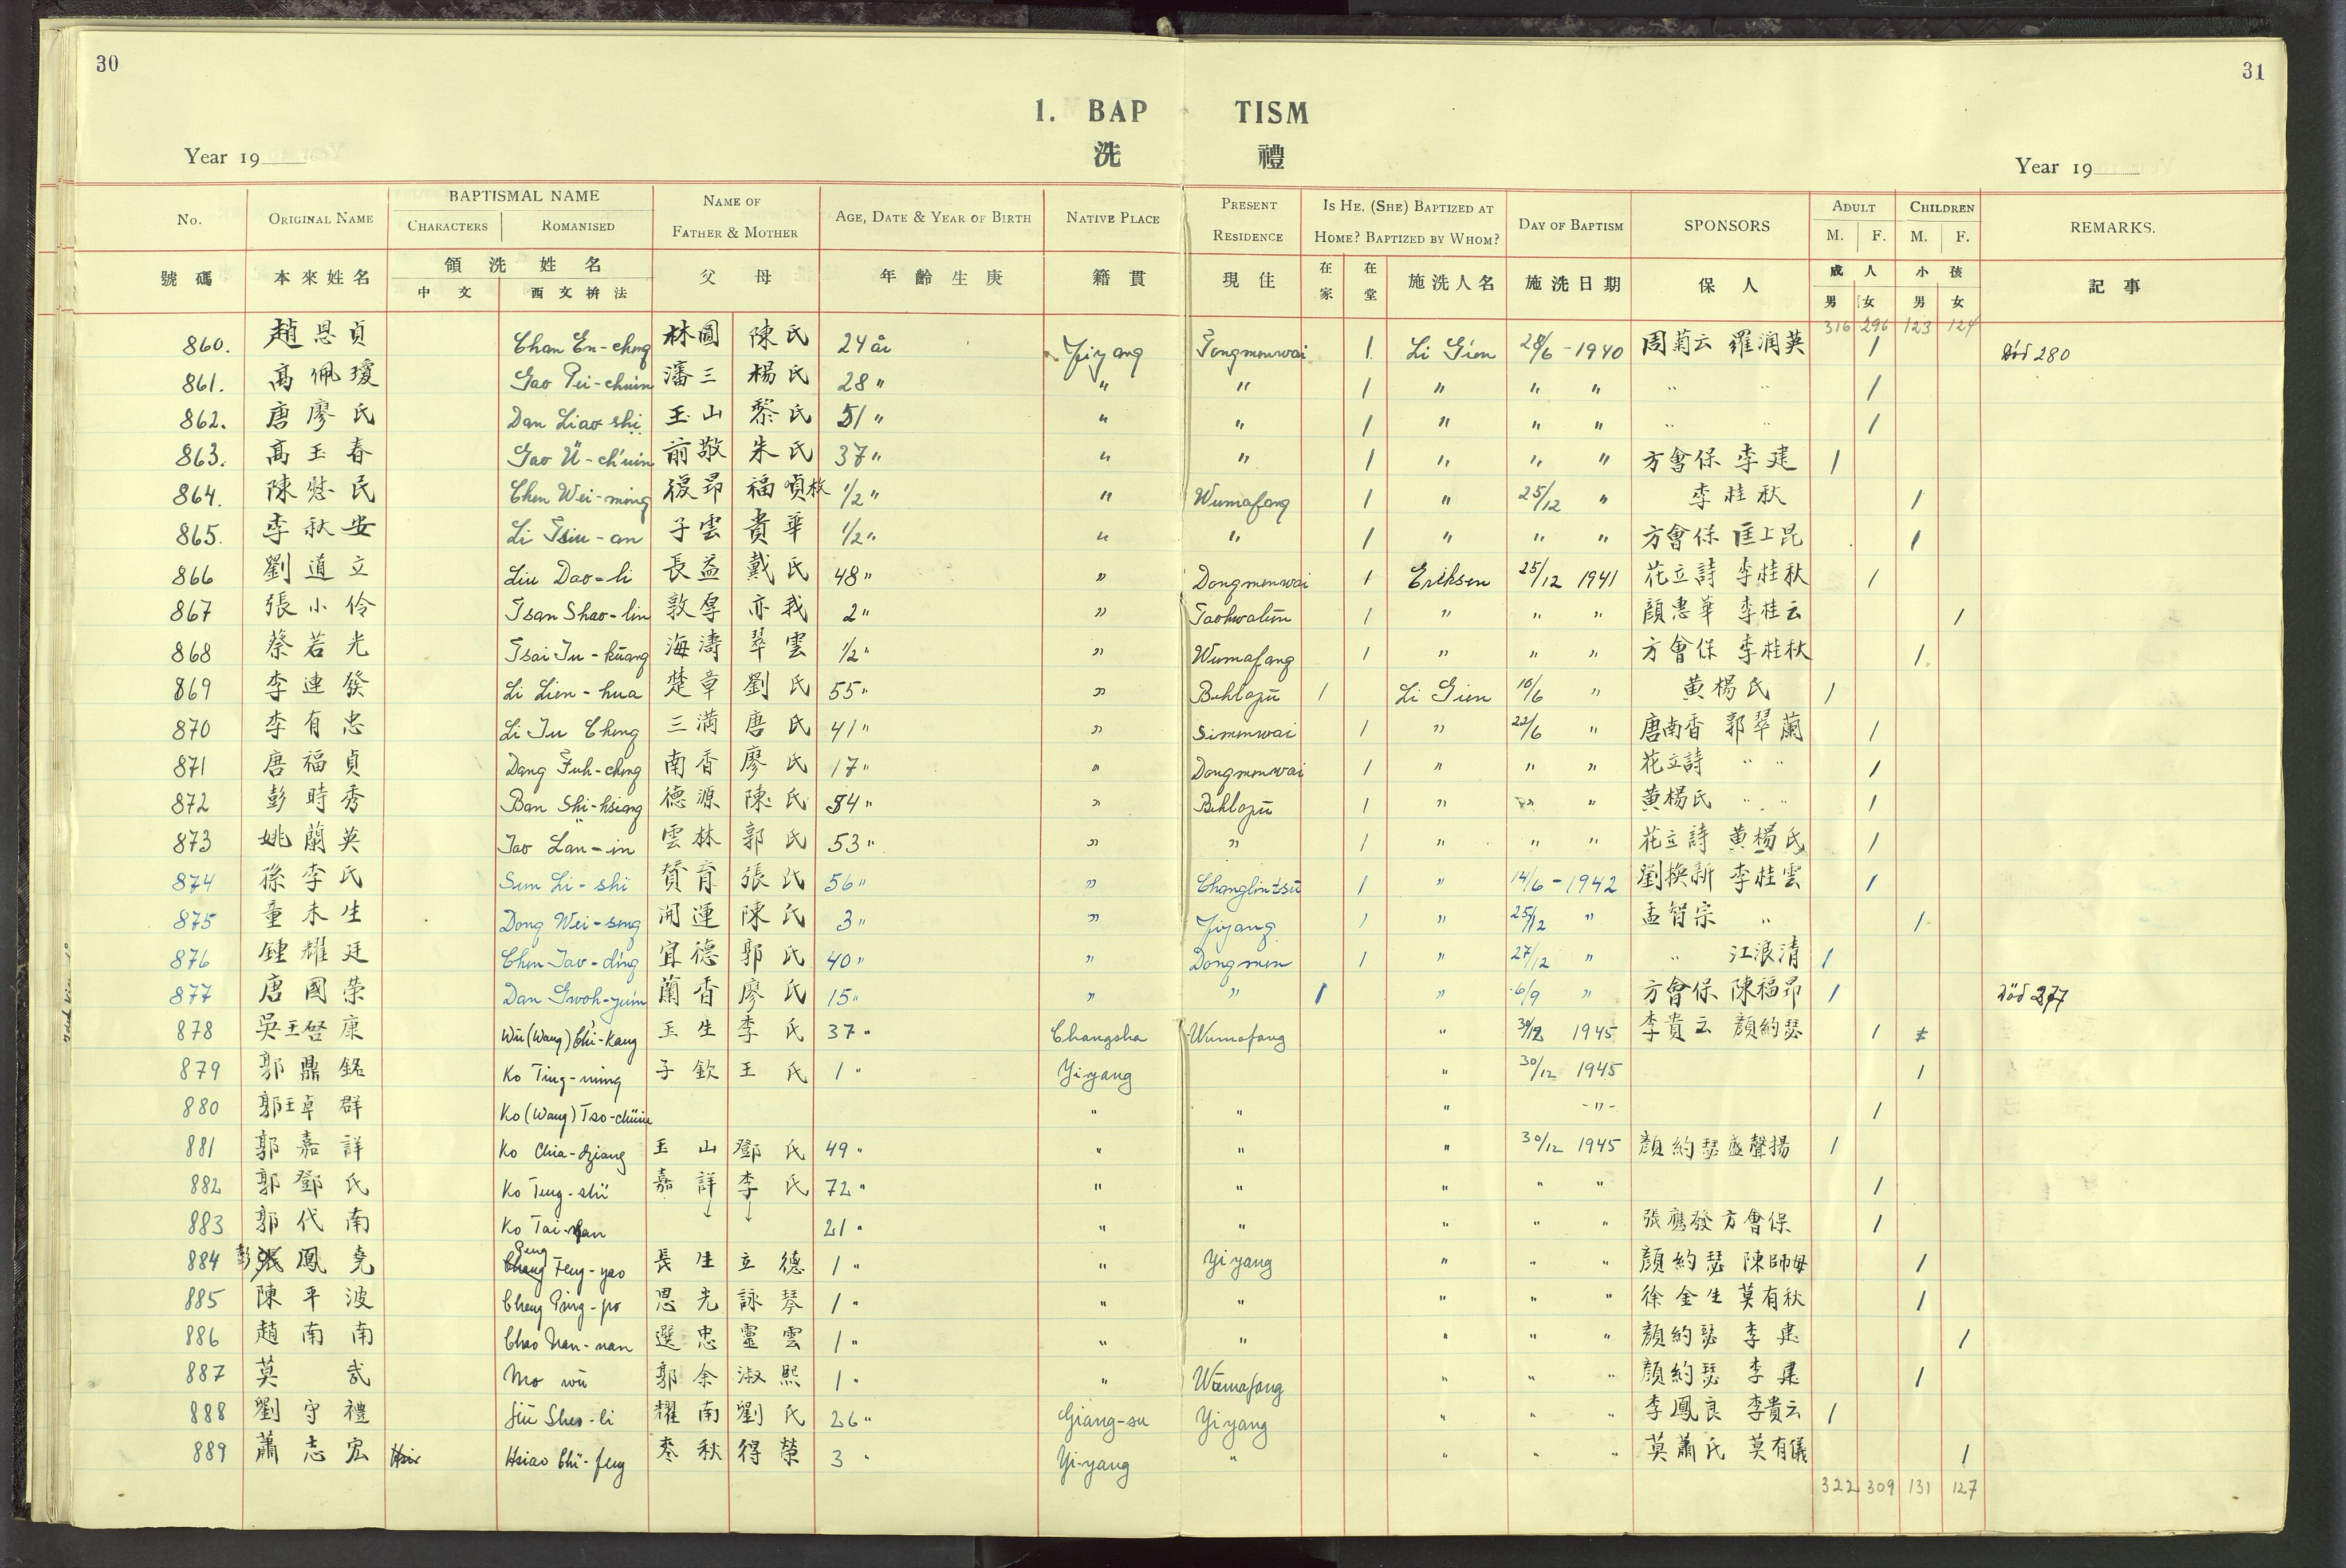 30
31
1. BAP TISM
洗 禮
Year 19
Year 19
No. ORIGINAL NAME BAPTISMAL NAME CHARACTERS ROMANISED NAME OF FATHER & MOTHER AGE, DATE & YEAR OF BIRTH NATIVE PLACE PRESENT RESIDENCE IS HE, (SHE) BAPTIZED AT HOME? BAPTIZED BY WHOM? DAY OF BAPTISM SPONSORS ADULT M. F. CHILDREN M. F. REMARKS.
號碼 本來姓名 領洗姓名 中文 西文拚法 父母 年齡生庚 籍貫 現住 在家 在堂 施洗人名 施洗日期 保人 成人 男 女 小孩 男 女 記事
316 296 123 124
860. 趙恩貞 Chan En-cheng 林圓 陳氏 24 år Yiyang Tongmenwai 1 Li Gien 28/6-1940 周菊云 羅润英 1 död 280
861. 高佩瓊 Gao Pei-chuin 藩三 楊氏 28 " " " 1 " " " " " 1
862. 唐廖氏 Dan Liao-shi 玉山 黎氏 51 " " " 1 " " " " " 1
863. 高玉春 Gao Ü-ch'uin 前敬 朱氏 37 " " " 1 " " " 方會保 李建 1
864. 陳慰民 Chen Wei-ming 復昂 福 1/2 " " Wumafang 1 " 25/12 " 李桂秋 1
865. 李秋安 Li Tsiu-an 子雲 貴華 1/2 " " " 1 " " " 方會保 匡上昆 1
866 劉道立 Liu Dao-li 長益 戴氏 48 " " Dongmenwai 1 Eriksen 25/12 1941 花立詩 李桂秋 1
867 張小伶 Tsan Shao-lin 敦厚 亦我 2 " " Taohwalün 1 " " " 顔惠華 李桂云 1
868 蔡若光 Tsai Ju-kuang 海濤 翠雲 1/2 " " Wumafang 1 " " " 方會保 李桂秋 1
869 李連發 Li Lien-hua 楚章 劉氏 55 " " Behlozü 1 Li Gien 10/6 " 黄楊氏 1
870 李有忠 Li Ju Cheng 三满 唐氏 41 " " Simenwai 1 " 22/6 " 唐南香 郭翠蘭 1
871 唐福貞 Dang Fuh-cheng 南香 廖氏 17 " " Dongmenwai 1 " " " 花立詩 " " 1
872 彭時秀 Ban Shi-hsiang 德源 陳氏 54 " " Behlozü 1 " " " 黄楊氏 " " 1
873 姚蘭英 Jao Lan-in 雲林 郭氏 53 " " " 1 " " " 花立詩 黄楊氏 1
874 孫李氏 Sun Li-shï 賛育 張氏 56 " " Changlintsü 1 " 14/6-1942 劉換新 李桂雲 1
875 童未生 Dong Wei-seng 開運 陳氏 3 " " Yiyang 1 " 25/12 " 孟智宗 " 1
876 鍾耀廷 Chen Jao-ding 宜德 郭氏 40 " " Dongmen 1 " 27/12 " " 江浪清 1
877 唐國荣 Dan Gwoh-yuin 蘭香 廖氏 15 " " " 1 " 6/9 " 方會保 陳福昂 1 död 277
878 吳王啓康 Wu (Wang) Chi-Kang 玉生 李氏 37 " Changsha Wumafang " 30/12 1945 李貴云 顔約瑟 1
879 郭鼎銘 Ko Ting-ming 子欽 王氏 1 " Yiyang " 30/12 1945 1
880 郭王卓群 Ko (Wang) Tso-chüin " " " -"- 1
881 郭嘉詳 Ko Chia-dziang 玉山 鄧氏 49 " " " " 30/12 1945 顔約瑟 盛聲揚 1
882 郭鄧氏 Ko Teng-shï 嘉詳 李氏 72 " " " " " " 1
883 郭代南 Ko Tai-nan ↓ ↓ 21 " " " " " " 張鹰發 方會保 1
884 彭張鳳尭 Peng Chang Feng-yao 長生 立德 1 " " Yi yang " " " 顔約瑟 陳師母 1
885 陳平波 Cheng Ping-po 思光 詠琴 1 " " " " " " 徐金生 莫有秋 1
886 趙南南 Chao Nan-nan 選忠 靈雲 1 " " " " " " 顔約瑟 李建 1
887 莫 Mo wu 郭余 淑熙 1 " " Wumafang " " " 顔約瑟 李建 1
888 劉守禮 Liu Sheo-li 耀南 劉氏 26 " Giang-su Yiyang " " " 李鳳良 李貴云 1
889 蕭志宏 Hsiao Chï-feng 冬秋 得榮 3 " Yi-yang " " " " 莫蕭氏 莫有儀 1
322 309 131 127